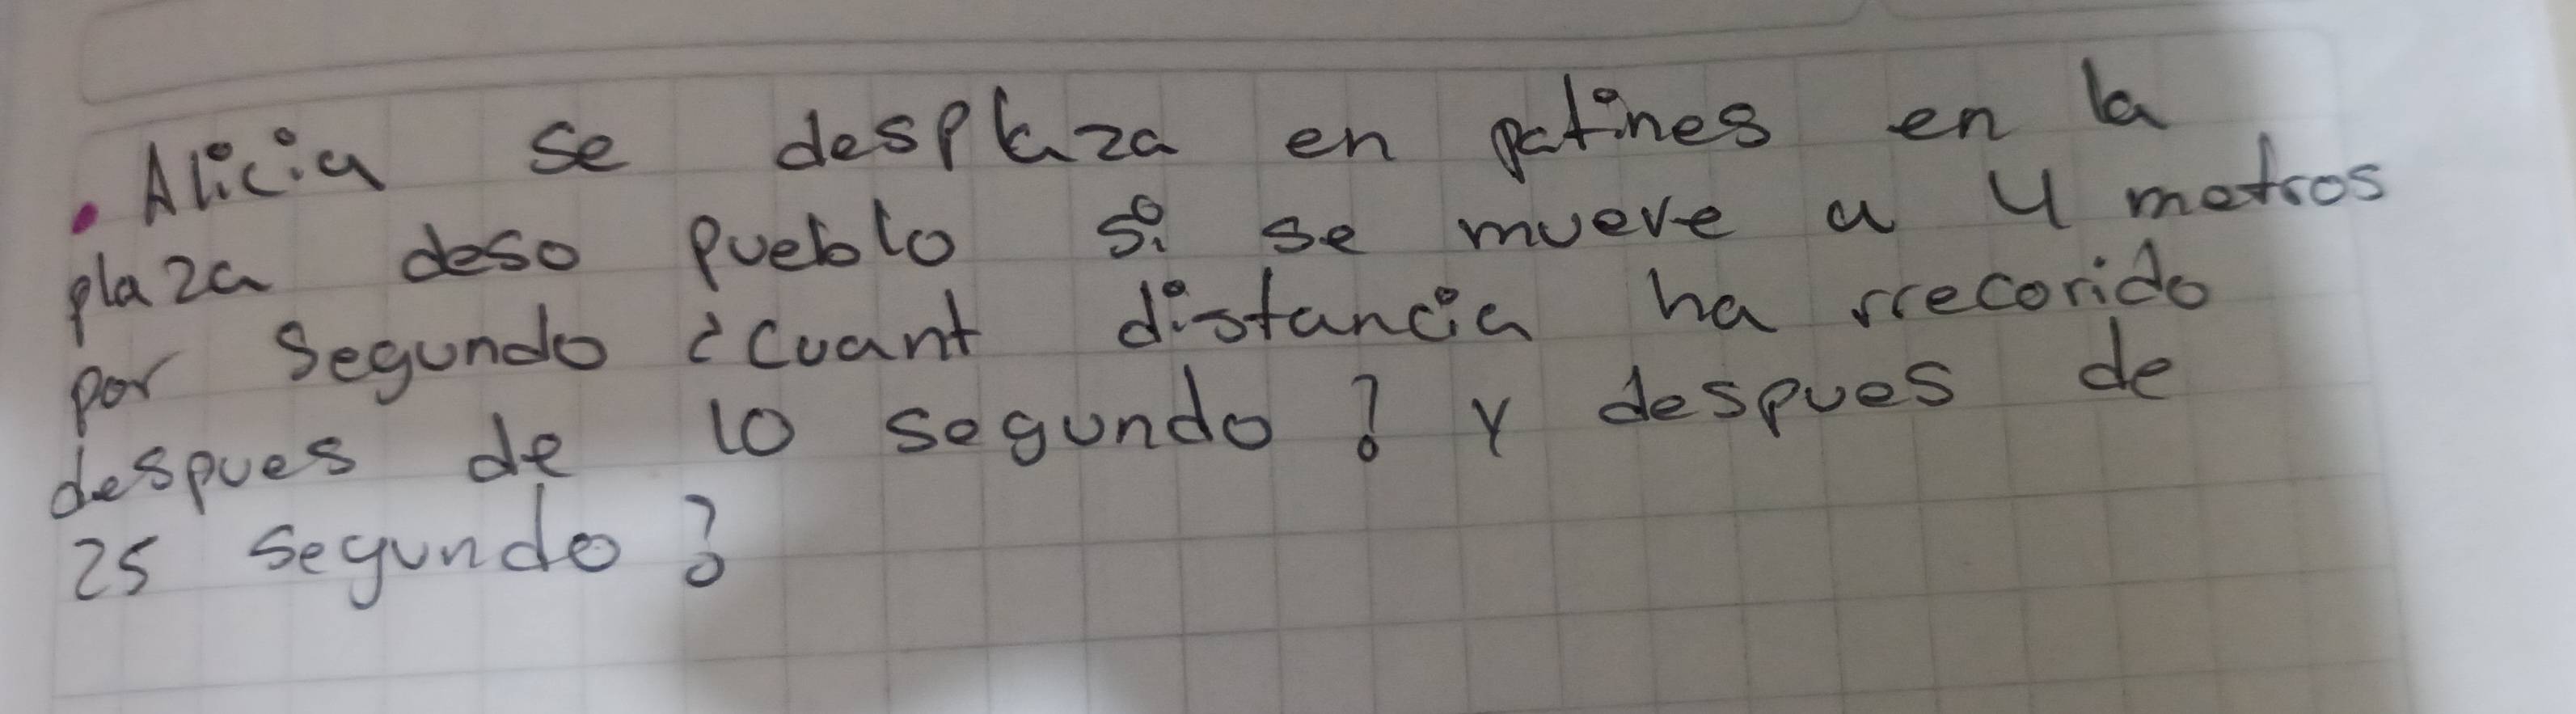 . Alicia se desplaza en patines en la
plaza deso pueblo si se mueve a 4 metros
por segundo ¿cuant distancia ha rrecorido
despues de 10 segundo? Y despues de
25 segundo?